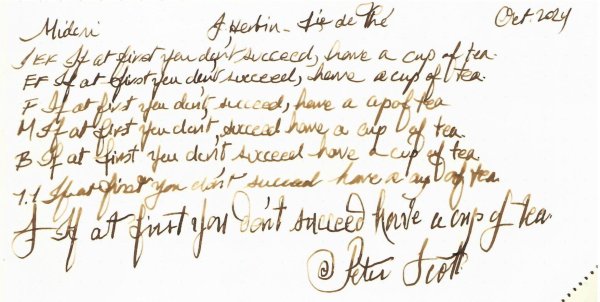 Midori J Herbin - Lie de Thé Oct. 2024
1 EF If at first you don't succeed, have a cup of tea.
EF If at first you don't succeed, have a cup of tea.
F If at first you don't, succeed, have a cup of tea
M If at first you don't, succeed have a cup of tea.
B If at first you don't succeed have a cup of tea.
1.1 If at first you don't succeed have a cup of tea.
J If at first you don't succeed have a cup of tea.
@ Peter Scott